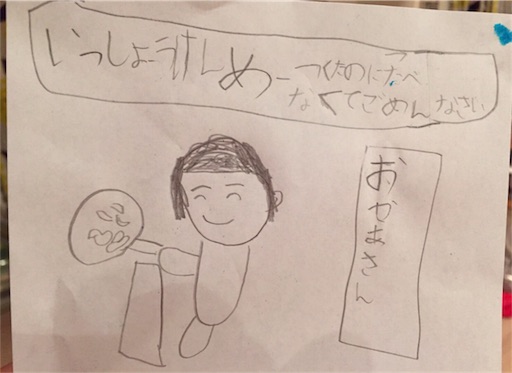 いっしょーけんめーつくたのにたべ
なくてごめんなさい
おかあさん